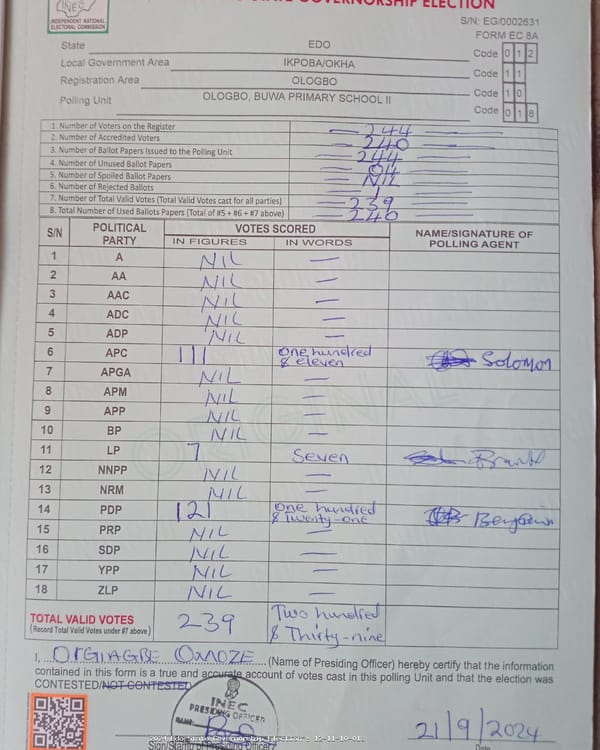 GOVERNORSHIP ELECTION
INEC
INDEPENDENT NATIONAL
ELECTORAL COMMISSION
S/N: EG/0002631
FORM EC 8A
State EDO Code 0 1 2
Local Government Area IKPOBA/OKHA Code 1 1
Registration Area OLOGBO Code 1 0
Polling Unit OLOGBO, BUWA PRIMARY SCHOOL II Code 0 1 8
1. Number of Voters on the Register 244
2. Number of Accredited Voters 240
3. Number of Ballot Papers Issued to the Polling Unit 244
4. Number of Unused Ballot Papers 04
5. Number of Spoiled Ballot Papers NIL
6. Number of Rejected Ballots 1
7. Number of Total Valid Votes (Total Valid Votes cast for all parties) 239
8. Total Number of Used Ballots Papers (Total of #5 + #6 + #7 above) 240
S/N POLITICAL PARTY VOTES SCORED NAME/SIGNATURE OF POLLING AGENT
IN FIGURES IN WORDS
1 A NIL —
2 AA NIL —
3 AAC NIL —
4 ADC NIL —
5 ADP NIL —
6 APC 111 One hundred & eleven Solomon
7 APGA NIL —
8 APM NIL —
9 APP NIL —
10 BP NIL —
11 LP 7 Seven
12 NNPP NIL —
13 NRM NIL —
14 PDP 121 One hundred & Twenty-one
15 PRP NIL —
16 SDP NIL —
17 YPP NIL —
18 ZLP NIL —
TOTAL VALID VOTES 239 Two hundred & Thirty-nine
(Record Total Valid Votes under #7 above)
I, OMOZE (Name of Presiding Officer) hereby certify that the information
contained in this form is a true and accurate account of votes cast in this polling Unit and that the election was
CONTESTED/NOT CONTESTED
INEC
PRESIDING OFFICER
21/9/2024
Date
ORIGINAL